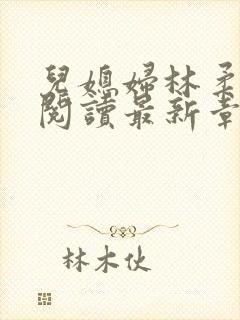 兒媳婦林柔
閱讀最新章
林木伙